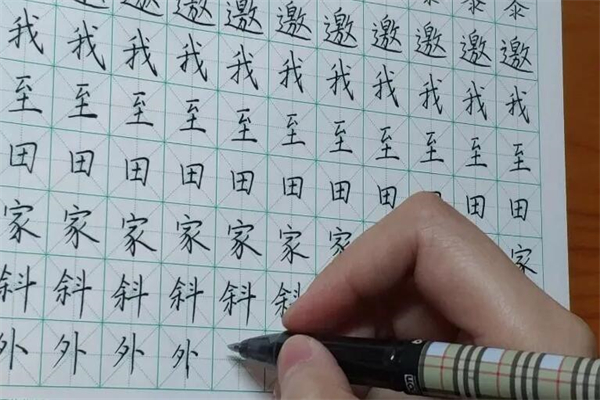 黍黍
邀邀邀邀邀邀邀邀邀
我我我我我我我我我我我
至至至至至至至至至至至
田田田田田田田田田田田
家家家家家家家家
斜斜斜斜斜斜
外外外外